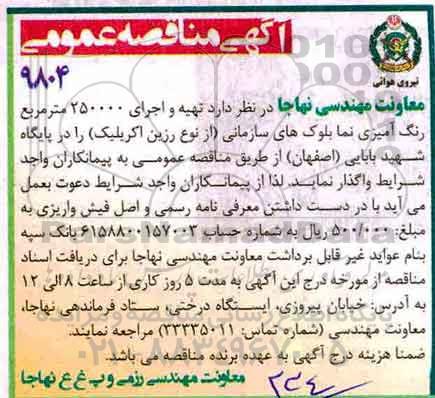 آگهی مناقصه عمومی
نیروی هوائی
۹۸۰۴
معاونت مهندسی نهاجا در نظر دارد تهیه و اجرای ۲۵۰۰۰۰ مترمربع
رنگ آمیزی نما بلوک های سازمانی (از نوع رزین اکریلیک) را در پایگاه
شهید بابایی (اصفهان) از طریق مناقصه عمومی به پیمانکاران واجد
شرایط واگذار نمایند. لذا از پیمانکاران واجد شرایط دعوت بعمل
می آید با در دست داشتن معرفی نامه رسمی و اصل فیش واریزی به
مبلغ: ۵۰۰/۰۰۰ ریال به شماره حساب ۶۱۵۸۸۰۰۱۵۷۰۰۳ بانک سپه
بنام عواید غیر قابل برداشت معاونت مهندسی نهاجا برای دریافت اسناد
مناقصه از مورخه درج این آگهی به مدت ۵ روز کاری از ساعت ۸ الی ۱۲
به آدرس: خیابان پیروزی، ایستگاه درختی، ستاد فرماندهی نهاجا،
معاونت مهندسی (شماره تماس: ۳۳۳۳۵۰۱۱) مراجعه نمایند.
ضمنا هزینه درج آگهی به عهده برنده مناقصه می باشد.
معاونت مهندسی رزمی و پ غ ع نهاجا